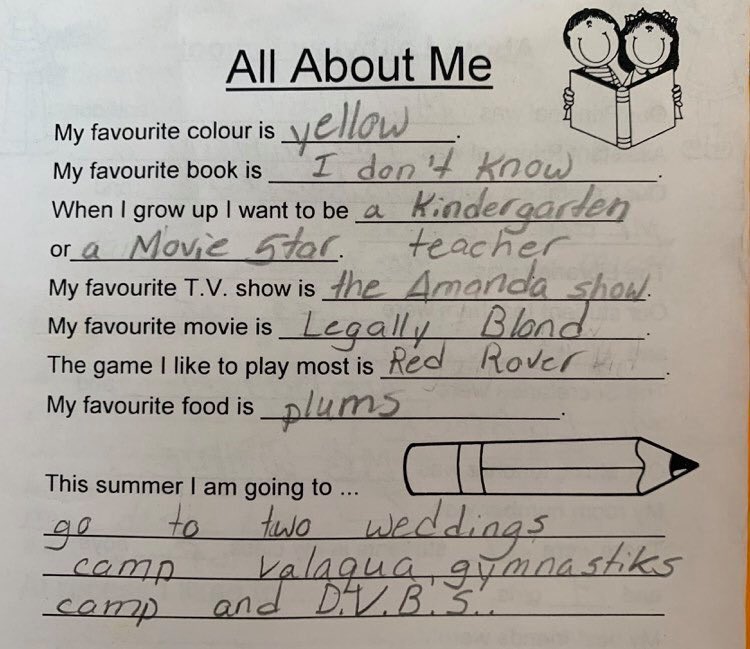 All About Me
My favourite colour is yellow.
My favourite book is I don't know.
When I grow up I want to be a Kindergarten
or a Movie Star. teacher
My favourite T.V. show is the Amanda show.
My favourite movie is Legally Blond.
The game I like to play most is Red Rover.
My favourite food is plums.
This summer I am going to ...
go to two weddings
camp valaqua, gymnastiks
camp and D.V.B.S..